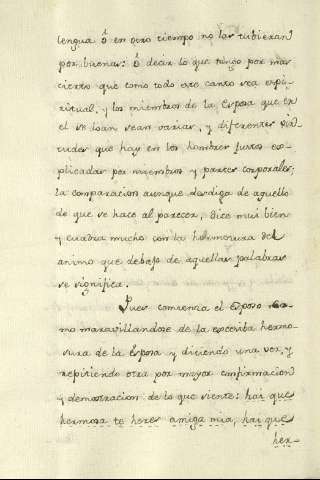 lengua ó en otro tiempo no las tubieran
por buenas: ó decir lo que tengo por mas
cierto que como todo este canto sea espi-
ritual, y los miembros de la Esposa que en
el se loan sean varias, y diferentes vir-
tudes que hay en los hombres justos es-
plicadas por miembros y partes corporales;
la comparacion aunque desdiga de aquello
de que se hace al parecer, dice mui bien
y cuadra mucho con la hermosura del
animo que debajo de aquellas palabras
se significa.
Pues comienza el esposo co-
mo maravillandose de la escesiba hermo-
sura de la Esposa y diciendo una vez, y
repitiendo otra por mayor confirmacion
y demostracion de lo que siente: hai que
hermosa te heres amiga mia, hai que
her-